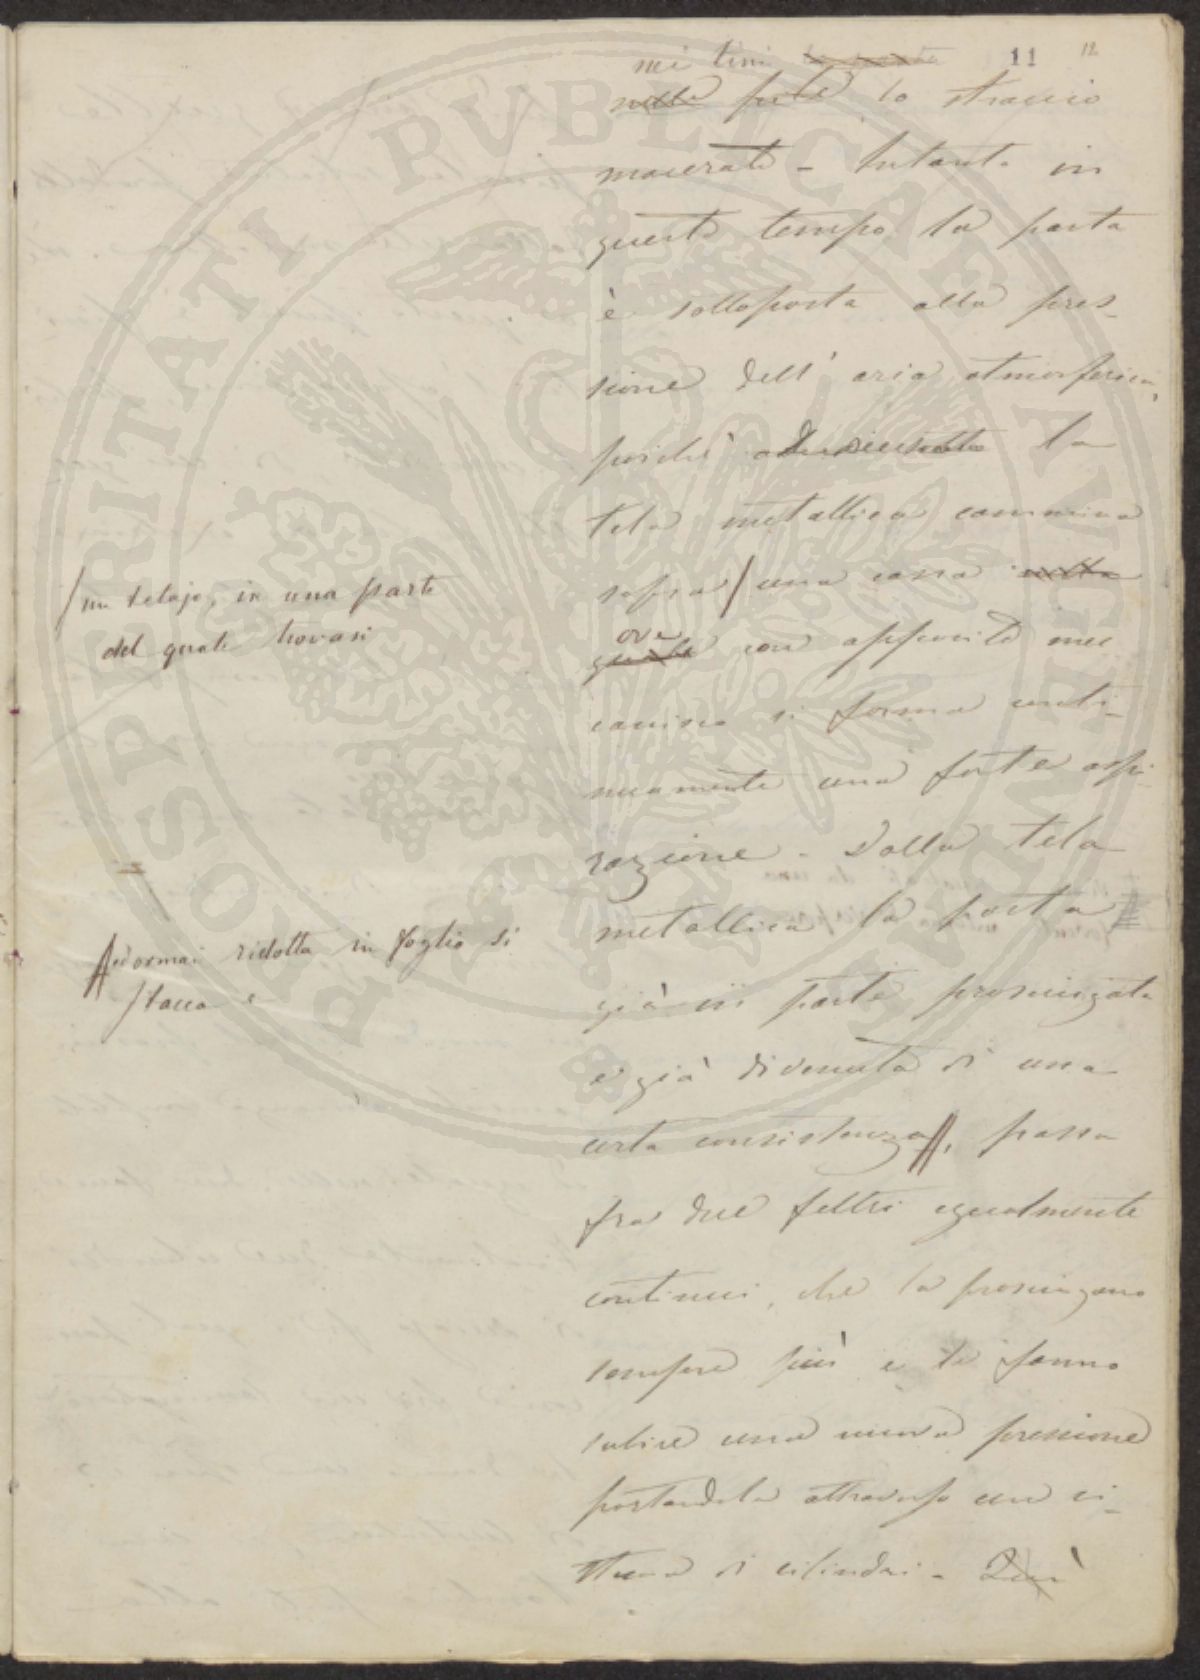 11 12
nei tini
nelle pile lo straccio
macerato - Intanto in
questo tempo la pasta
è sottoposta alla pres-
sione dell' aria atmosferica,
poichè la
tela metallica cammina
sopra / una cassa nella
ove
quale con apposito mec
canismo si forma conti-
nuamente una forte aspi-
razione - Dalla tela
metallica la pasta
già in parte prosciugata
e già divenuta di una
certa consistenza //, passa
fra due feltri egualmente
continui, che la prosciugano
sempre più e le fanno
subire una nuova pressione
portandola attraverso un si-
stema di cilindri - Quì
/ un telajo, in una parte
del quale trovasi
// ed ormai ridotta in foglio si
stacca e
PROSPERITATI PVBLICAE AVGENDAE